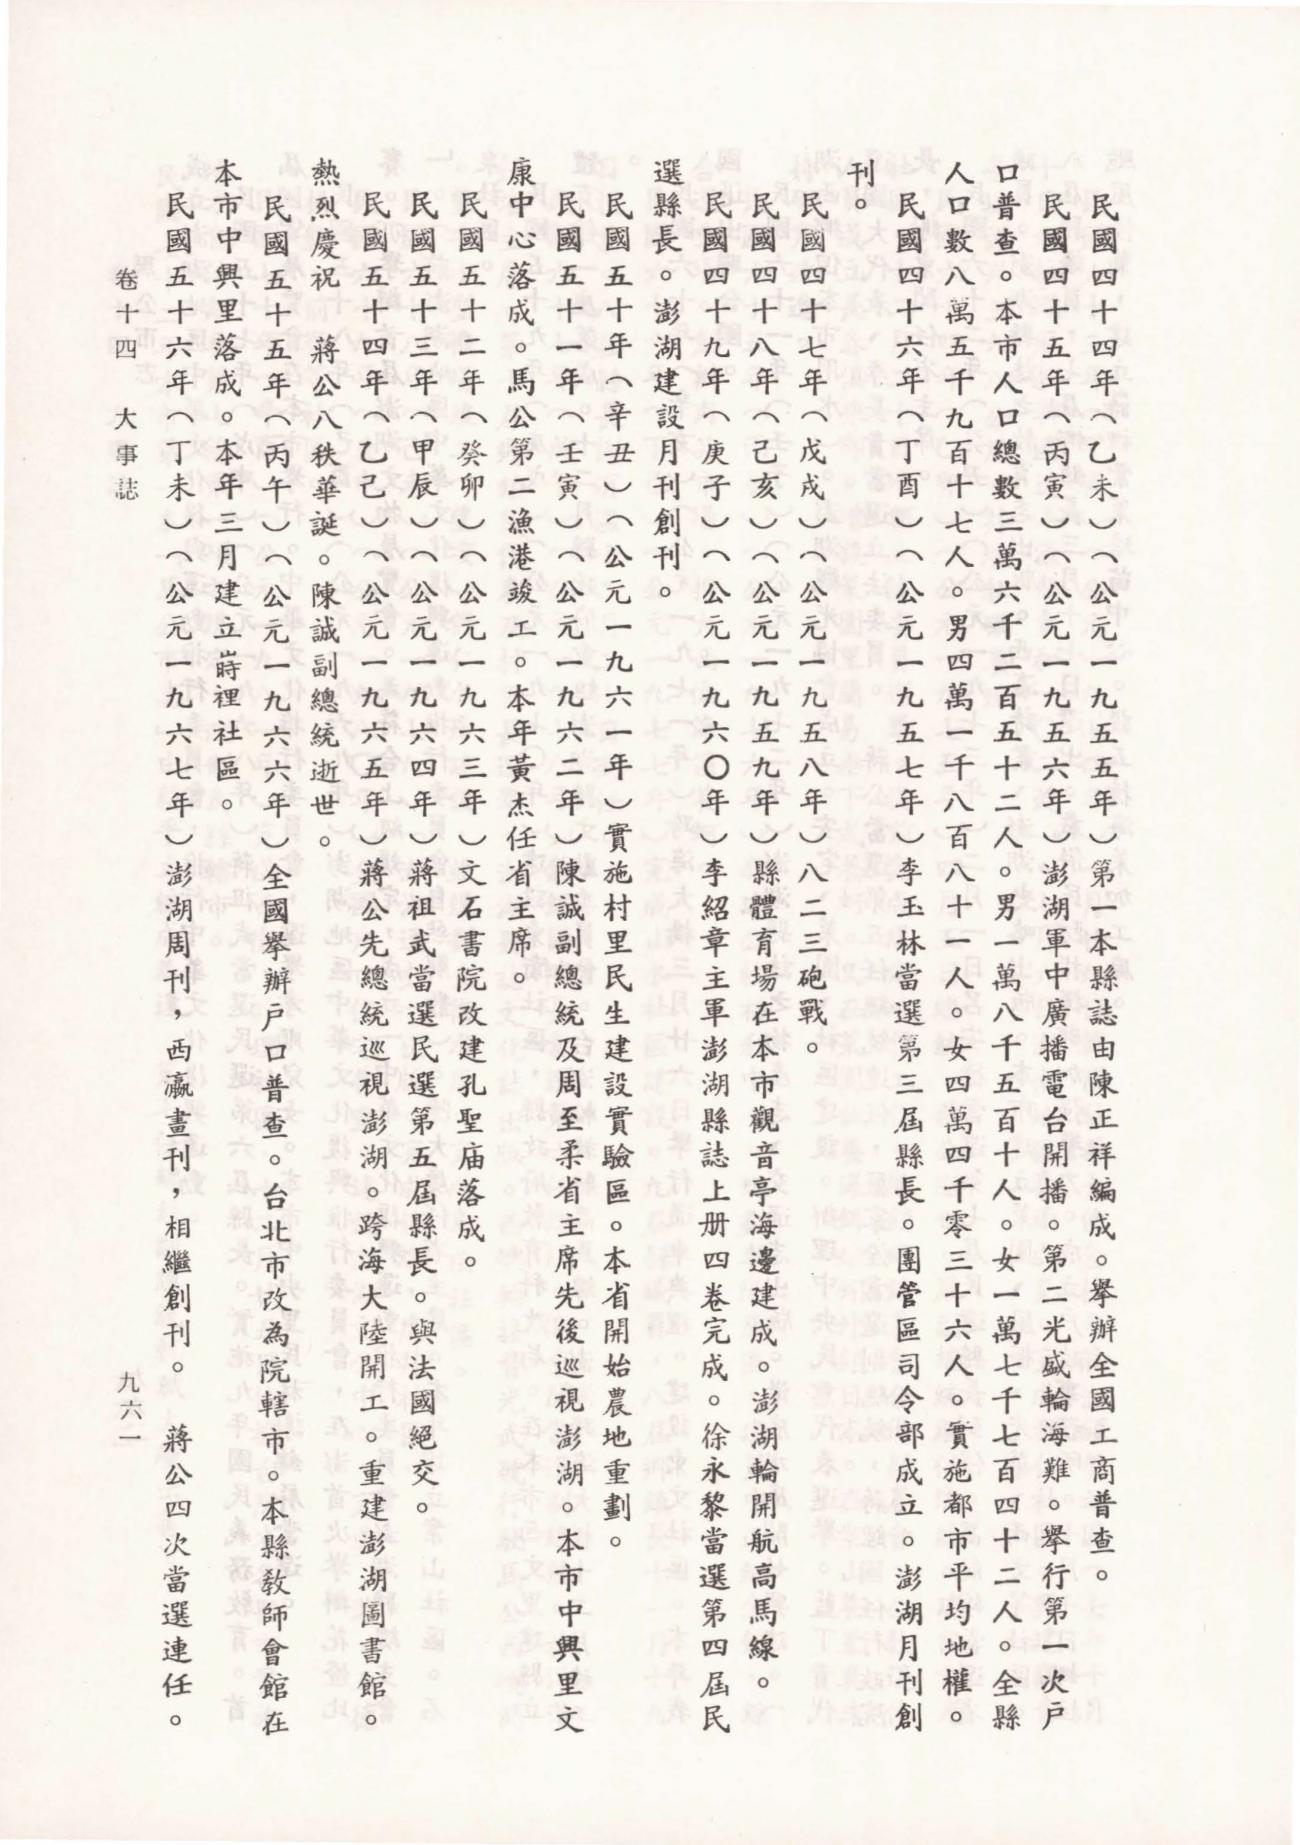 民國四十四年（乙未）（公元一九五五年）第一本縣誌由陳正祥編成。舉辦全國工商普查。
民國四十五年（丙寅）（公元一九五六年）澎湖軍中廣播電台開播。第二光盛輪海難。舉行第一次戶
口普查。本市人口總數三萬六千二百五十二人。男一萬八千五百十人。女一萬七千七百四十二人。全縣
人口數八萬五千九百十七人。男四萬一千八百八十一人。女四萬四千零三十六人。實施都市平均地權。
民國四十六年（丁酉）（公元一九五七年）李玉林當選第三屆縣長。團管區司令部成立。澎湖月刊創
刊。
民國四十七年（戊戌）（公元一九五八年）八二三砲戰。
民國四十八年（己亥）（公元一九五九年）縣體育場在本市觀音亭海邊建成。澎湖輪開航高馬線。
民國四十九年（庚子）（公元一九六〇年）李紹章主軍澎湖縣誌上册四卷完成。徐永黎當選第四屆民
選縣長。澎湖建設月刊創刊。
民國五十年（辛丑）（公元一九六一年）實施村里民生建設實驗區。本省開始農地重劃。
民國五十一年（壬寅）（公元一九六二年）陳誠副總統及周至柔省主席先後巡視澎湖。本市中興里文
康中心落成。馬公第二漁港竣工。本年黃杰任省主席。
民國五十二年（癸卯）（公元一九六三年）文石書院改建孔聖庙落成。
民國五十三年（甲辰）（公元一九六四年）蔣祖武當選民選第五屆縣長。與法國絕交。
民國五十四年（乙己）（公元一九六五年）蔣公先總統巡視澎湖。跨海大陸開工。重建澎湖圖書館。
熱烈慶祝　蔣公八秩華誕。陳誠副總統逝世。
民國五十五年（丙午）（公元一九六六年）全國舉辦戶口普查。台北市改為院轄市。本縣教師會館在
本市中興里落成。本年三月建立蒔裡社區。
民國五十六年（丁未）（公元一九六七年）澎湖周刊，西瀛畫刊，相繼創刊。　蔣公四次當選連任。
卷十四　大事誌
九六一